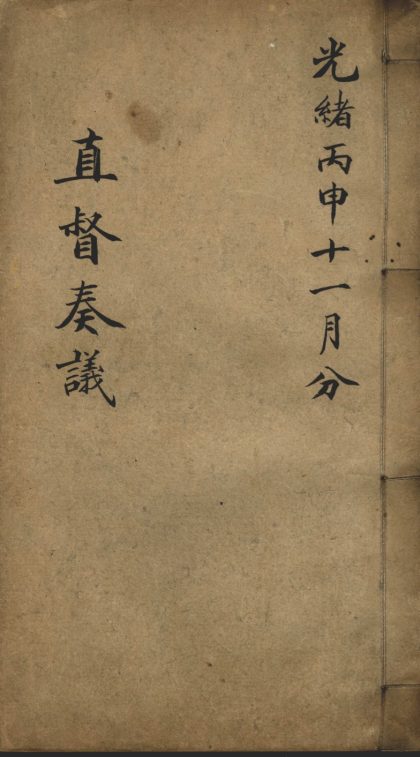 光緒丙申十一月分
直督奏議